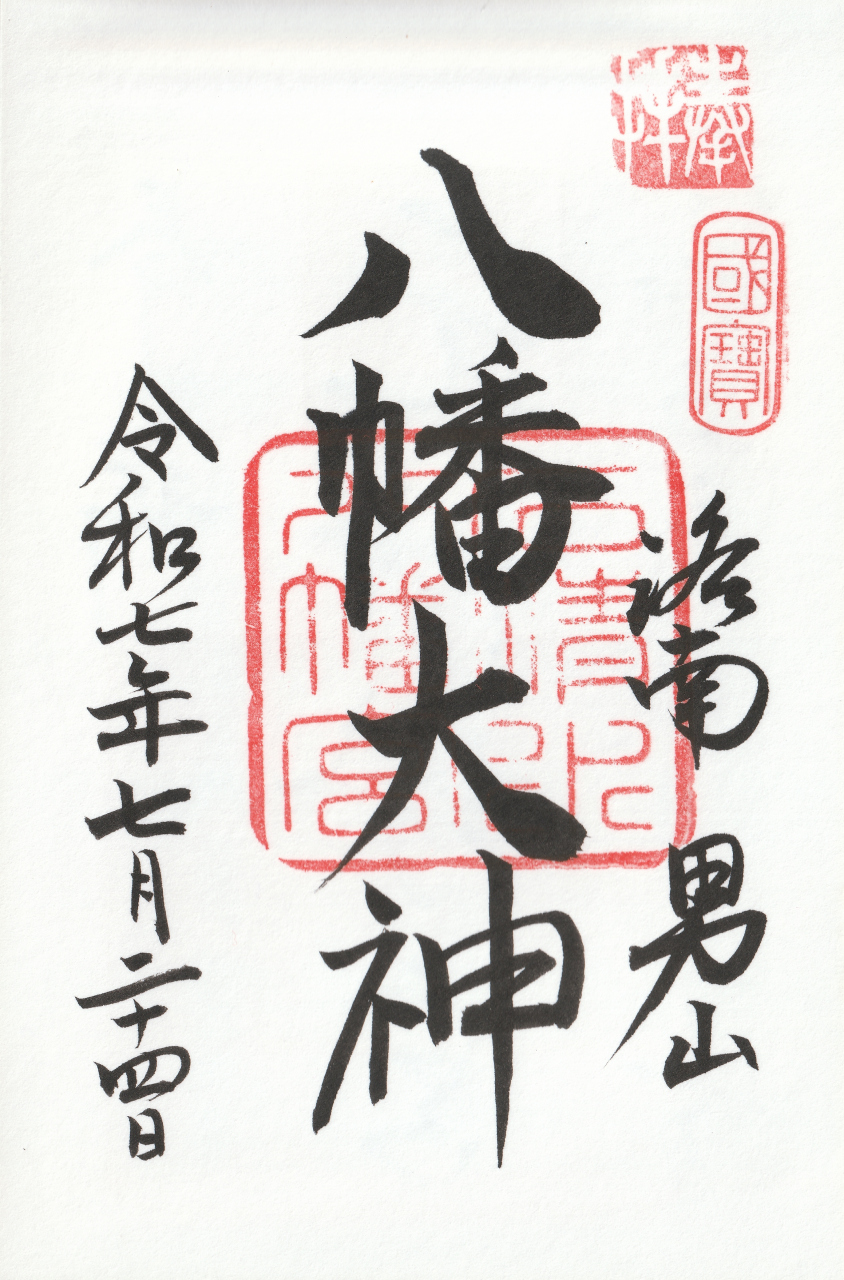 奉拝
國寶
洛南 男山
八幡大神
石清水
八幡宮
令和七年七月二十四日